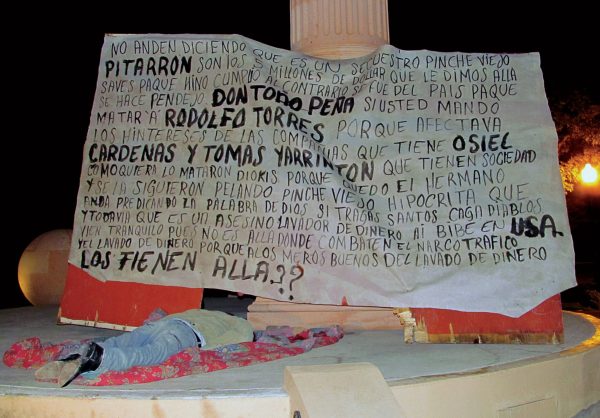 NO ANDEN DICIENDO QUE ES UN SECUESTRO PINCHE VIEJO
PITARRON SON LOS 5 MILLONES DE DOLLAR QUE LE DIMOS ALLA
SAVES PAQUE HINO CUMPLIO AL CONTRARIO SI FUE DEL PAIS PAQUE
SE HACE PENDEJO. DON TOÑO PEÑA SI USTED MANDO
MATAR A RODOLFO TORRES PORQUE AFECTAVA
LOS HINTERESES DE LAS COMPAÑIAS QUE TIENE OSIEL
CARDENAS Y TOMAS YARRINTON QUE TIENEN SOCIEDAD
COMO QUIERA LO MATARON DIOKIS PORQUE QUEDO EL HERMANO
Y SE LA SIGUIERON PELANDO PINCHE VIEJO HIPOCRITA QUE
ANDA PREDICANDO LA PALABRA DE DIOS SI TRAGAS SANTOS CAGA DIABLOS
Y TODAVIA QUE ES UN ASESINO LAVADOR DE DINERO AI BIBE EN USA.
VIEN TRANQUILO PUES NO ES ALLA DONDE COMBATEN EL NARCOTRAFICO
Y EL LAVADO DE DINERO PORQUE A LOS MEROS BUENOS DEL LAVADO DE DINERO
LOS TIENEN ALLA.??